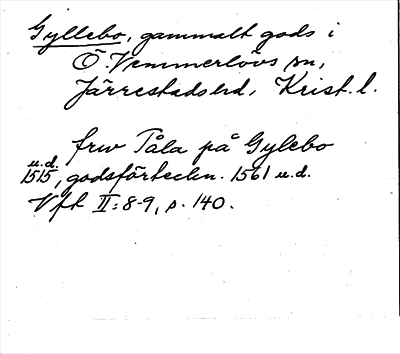 Gyllebo, gammalt gods i
Ö. Vemmerlövs sn,
Järrestads hd, Krist. l.
frw Tåla på Gylebo
u.d.
1515, godsförteckn. 1561 u.d.
Vft II: 8-9, s. 140.